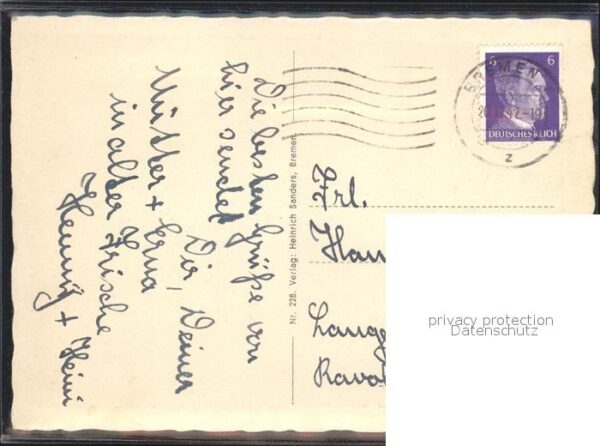 Die besten Grüße von
hier sendet
Dir, Deiner
Mutter + Erna
in alter Frische
Hennig + Heini
Nr. 228. Verlag: Heinrich Sanders, Bremen
BREMEN
z
6
6
DEUTSCHES REICH
Frl.
Han
Lange
Rav
privacy protection
Datenschutz